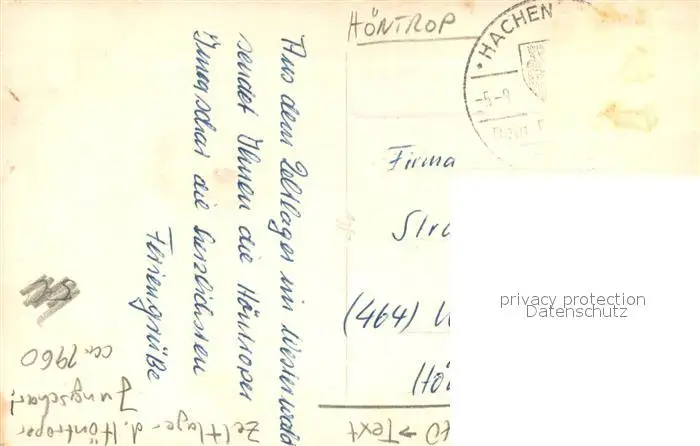 HÖNTROP
HACHEN
-5-9
Aus dem Zeltlager im Westerwald
sendet Ihnen die Höntroper
Jungschar die herzlichsten
Feriengrüße
Firma
Str
(464) W
Hö
privacy protection
Datenschutz
Zeltlager d. Höntroper
Jungschar!
ca 1960
→ Text